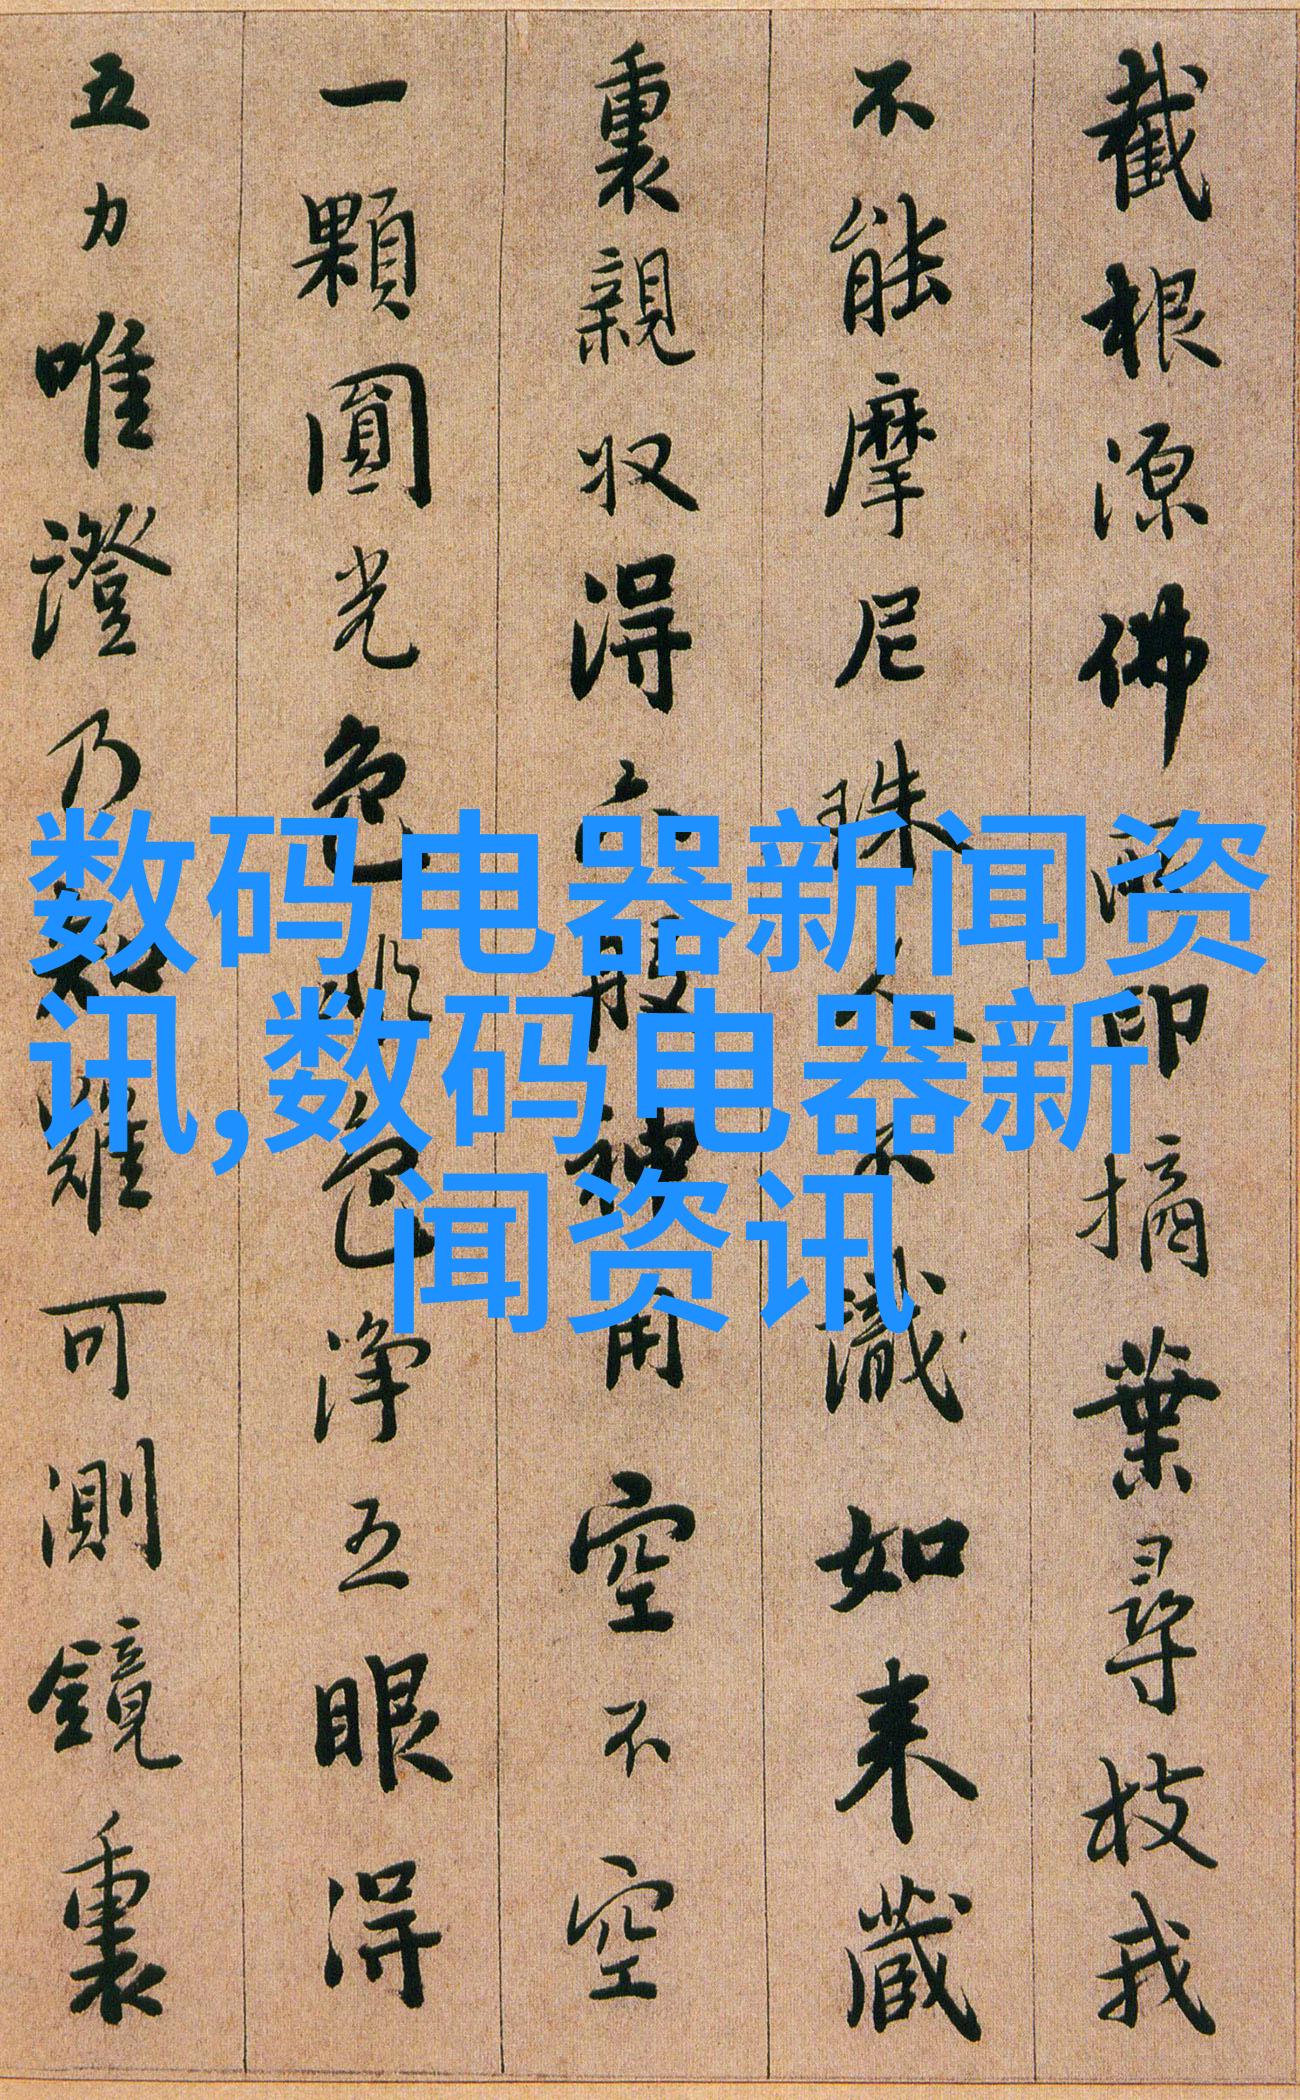 截根源佛所印摘葉尋枝我
不能摩尼珠人不識如来藏
裏親収得六般神用空不空
一顆圓光色非色淨五眼得
五力唯證乃知難可測鏡裏
数码电器新闻资
讯,数码电器新
闻资讯